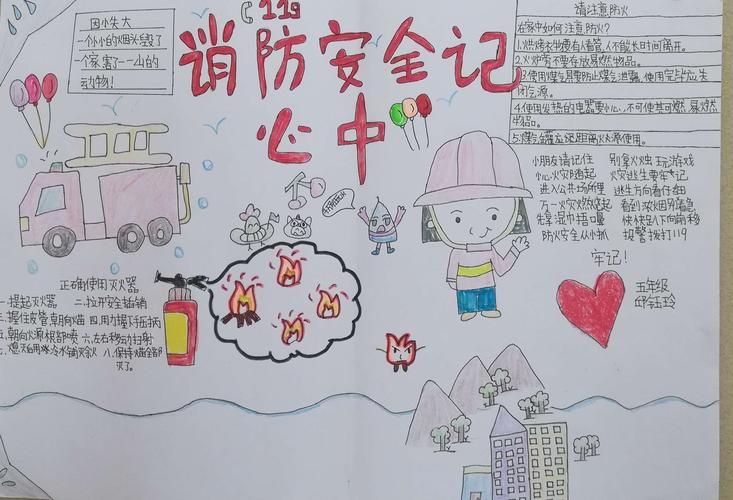 119
消防安全记
心中
因小失大
一个小小的烟头毁了
一个家 害了一山的
动物！
请注意防火
在家中如何注意防火？
1.烘烤衣物要有人看管，人不能长时间离开。
2.火炉旁不要存放易燃物品。
3.使用煤气具要防止煤气泄漏，使用完毕应关
闭气源。
4.使用发热的电器要小心，不可使其可燃 易燃
物品。
小朋友请记住 别拿火烛玩游戏
小心火灾随起 火灾逃生要牢记
进入公共场所里 逃生方向看仔细
万一火灾燃起 看到浓烟别着急
先拿湿巾捂口鼻 快快趴下向前移
防火安全从小抓 报警拨打119
牢记！
五年级
正确使用灭火器
一.提起灭火器 二.拉开安全插销
三.握住皮管，朝向火苗 四.用力握下手压柄
五.朝向火源根部喷 六.左右移动扫射
七.熄灭后用冷水铺灭余火 八.保持火苗全部
灭了。